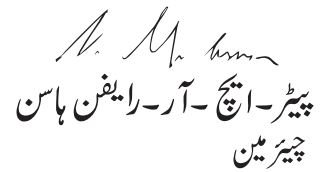 پیٹر۔ایچ۔آر۔رایفن ہاسن
چیئر مین